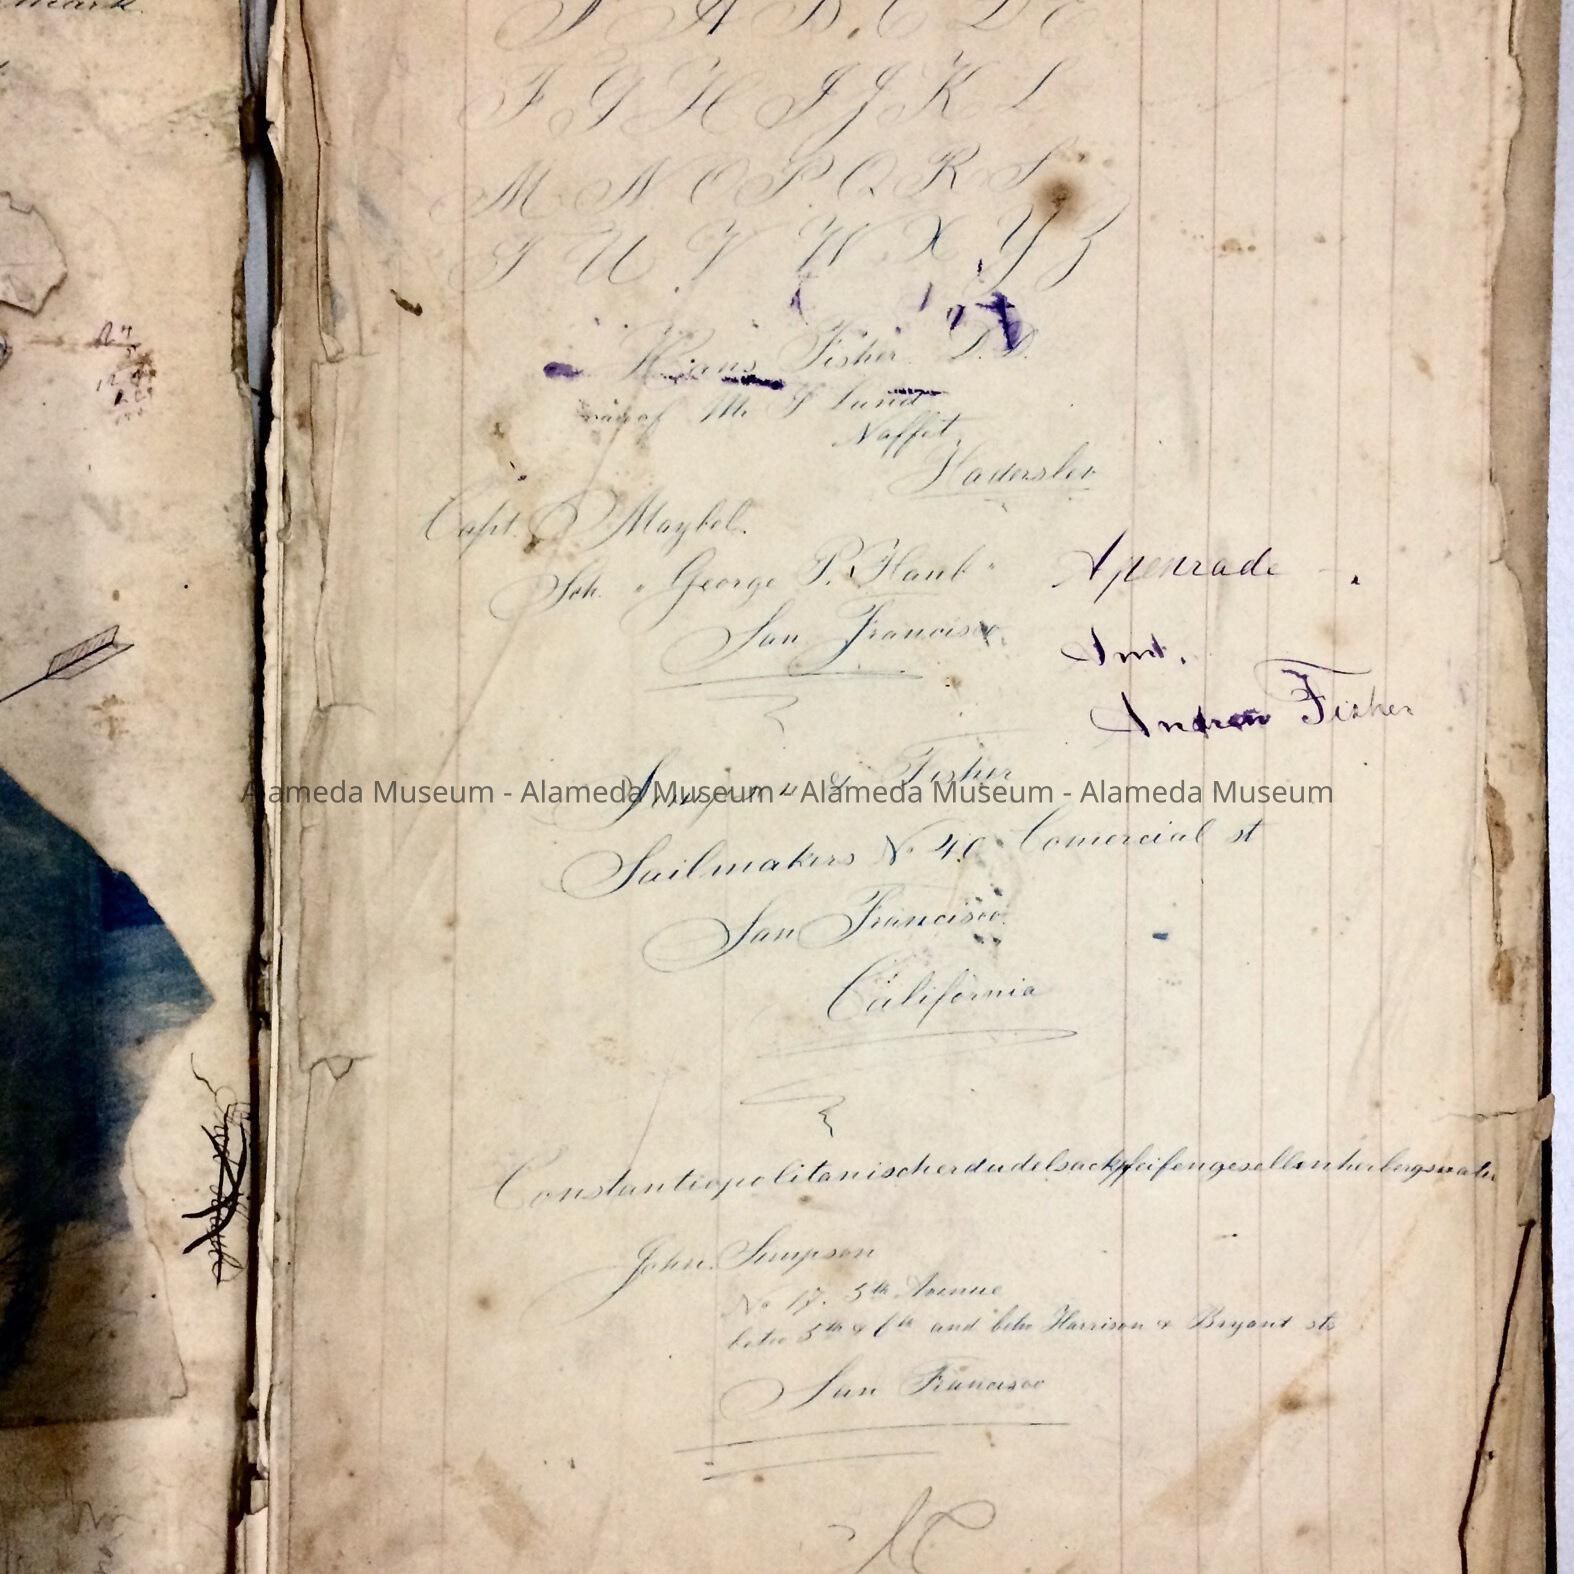 mark
F A B C D E
F G H I J K L
M N O P Q R S
T U V W X Y Z
Hans Fisher D.D.
Mr Lund
Naffet
Haderslev
Capt. P Maybel.
Sch. "George P. Hank"
San Francisco
Apenrade
Amt.
Andrew Fisher
Simpson & Fisher
Alameda Museum - Alameda Museum - Alameda Museum - Alameda Museum
Sailmakers No 40 Comercial st
San Francisco
California
Constantiopolitanischerdudelsackpfeifengesellenherbergsvater
John Simpson
No 17. 5th Avenue
betw 5th & 6th and betw Harrison & Bryant sts
San Francisco